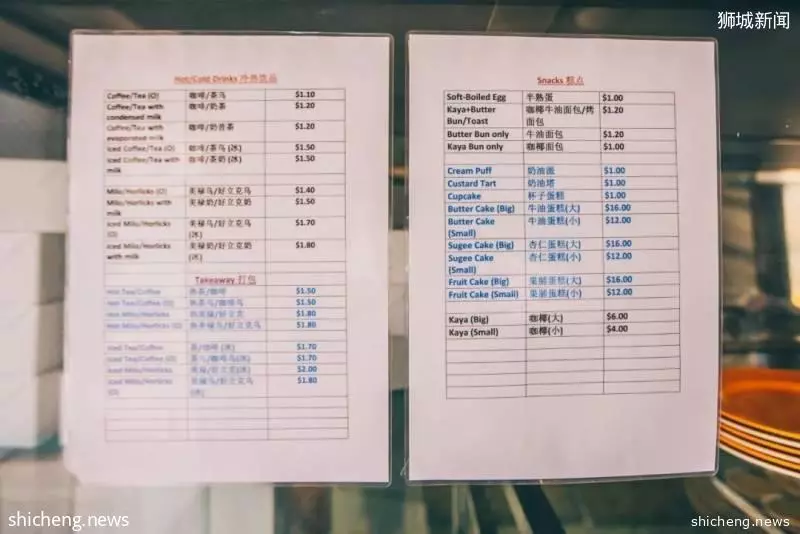 狮城新闻
Hot/Cold Drinks 冷热饮品
Coffee/Tea (O) 咖啡/茶乌 $1.10
Coffee/Tea with condensed milk 咖啡/奶茶 $1.20
Coffee/Tea with evaporated milk 咖啡/奶昔茶 $1.20
Iced Coffee/Tea (O) 咖啡/茶乌 (冰) $1.50
Iced Coffee/Tea with milk 咖啡/茶奶 (冰) $1.50
Milo/Horlicks (O) 美禄乌/好立克乌 $1.40
Milo/Horlicks with milk 美禄奶/好立克奶 $1.50
Iced Milo/Horlicks (O) 美禄乌/好立克乌 (冰) $1.70
Iced Milo/Horlicks with milk 美禄奶/好立克奶 (冰) $1.80
Takeaway 打包
Hot Tea/Coffee 热茶/咖啡 $1.50
Hot Tea/Coffee (O) 热茶乌/咖啡乌 $1.50
Hot Milo/Horlicks 热美禄/好立克 $1.80
Hot Milo/Horlicks (O) 热美禄乌/好立克乌 $1.80
Iced Tea/Coffee 茶/咖啡 (冰) $1.70
Iced Tea/Coffee (O) 茶乌/咖啡乌 (冰) $1.70
Iced Milo/Horlicks 美禄/好立克(冰) $2.00
Iced Milo/Horlicks (O) 美禄乌/好立克乌 (冰) $1.80
Snacks 糕点
Soft-Boiled Egg 半熟蛋 $1.00
Kaya+Butter Bun/Toast 咖椰牛油面包/烤面包 $1.20
Butter Bun only 牛油面包 $1.20
Kaya Bun only 咖椰面包 $1.00
Cream Puff 奶油蛋 $1.00
Custard Tart 奶油塔 $1.00
Cupcake 杯子蛋糕 $1.00
Butter Cake (Big) 牛油蛋糕(大) $16.00
Butter Cake (Small) 牛油蛋糕(小) $12.00
Sugee Cake (Big) 杏仁蛋糕(大) $16.00
Sugee Cake (Small) 杏仁蛋糕(小) $12.00
Fruit Cake (Big) 果脯蛋糕(大) $16.00
Fruit Cake (Small) 果脯蛋糕(小) $12.00
Kaya (Big) 咖椰(大) $6.00
Kaya (Small) 咖椰(小) $4.00
shicheng.news
shicheng.news